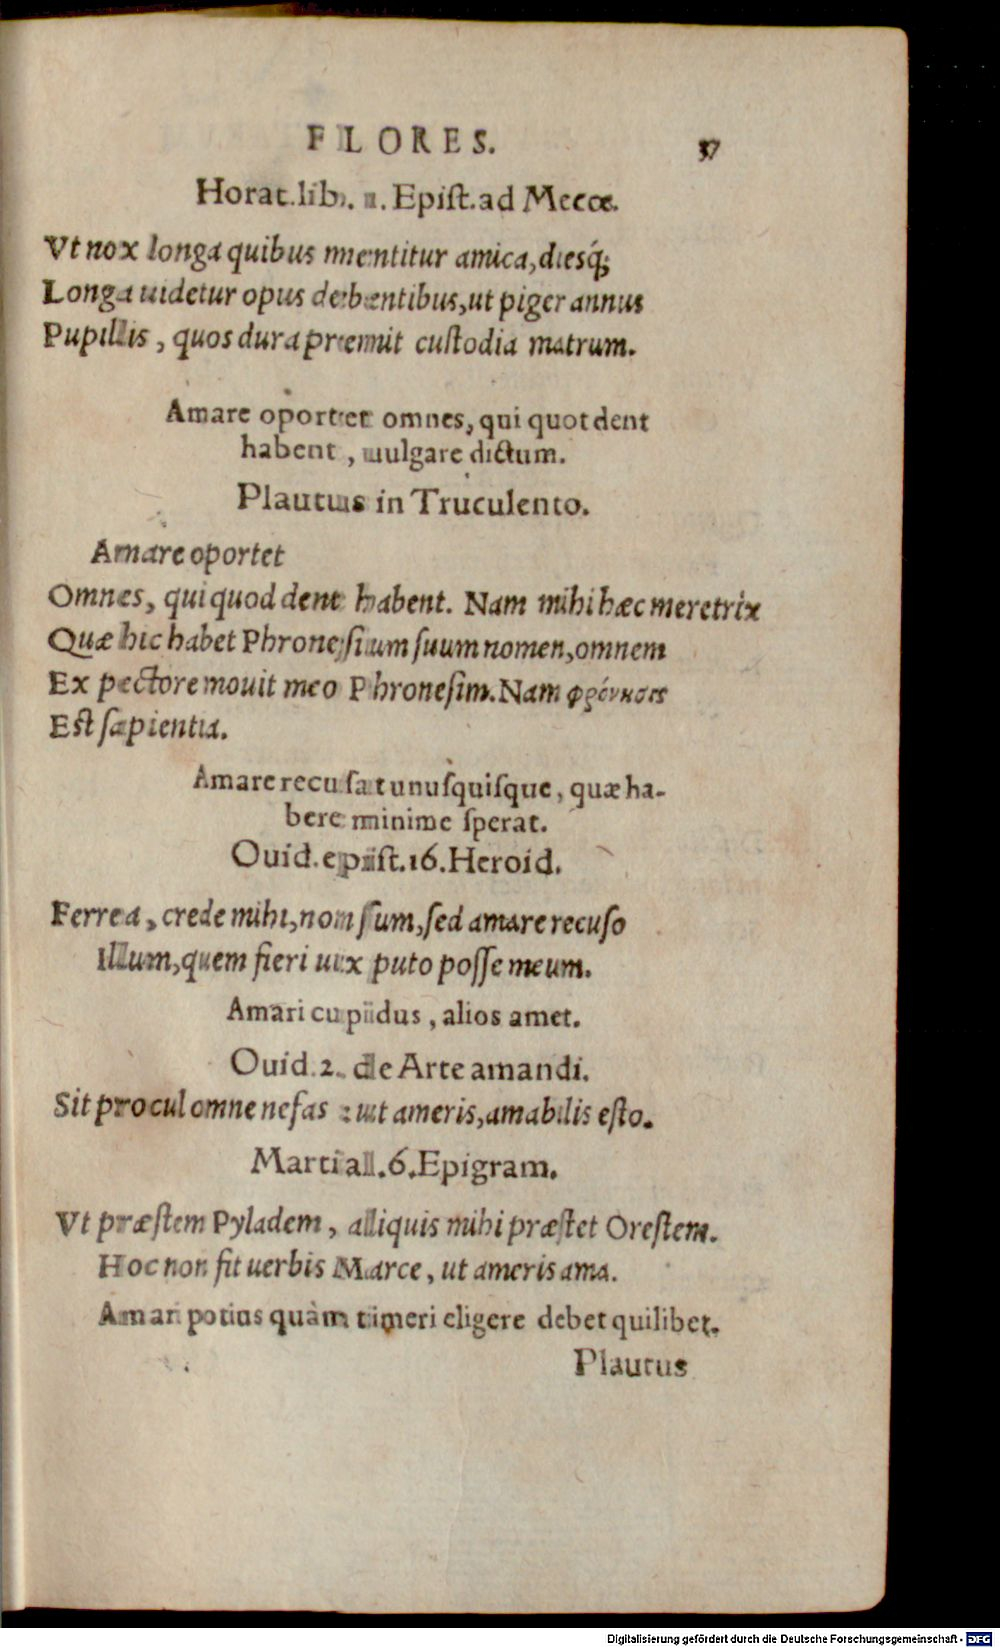 FLORES. 37
Horat. lib. 1. Epist. ad Mecœ.
Vt nox longa quibus mentitur amica, diesq́;
Longa uidetur opus debentibus, ut piger annus
Pupillis, quos dura premit custodia matrum.
Amare oportet omnes, qui quot dent
habent, uulgare dictum.
Plautus in Truculento.
Amare oportet
Omnes, qui quod dent habent. Nam mihi hæc meretrix
Quæ hic habet Phronesium suum nomen, omnem
Ex pectore mouit meo Phronesim. Nam φρόνησις
Est sapientia.
Amare recusat unusquisque, quæ ha-
bere minime sperat.
Ouid. epist. 16. Heroid.
Ferrea, crede mihi, non sum, sed amare recuso
Illum, quem fieri uix puto posse meum.
Amari cupidus, alios amet.
Ouid. 2. de Arte amandi.
Sit procul omne nefas: ut ameris, amabilis esto.
Martial. 6. Epigram.
Vt præstem Pyladem, aliquis mihi præstet Orestem.
Hoc non fit uerbis Marce, ut ameris ama.
Amari potius quàm timeri eligere debet quilibet.
Plautus
Digitalisierung gefördert durch die Deutsche Forschungsgemeinschaft - DFG